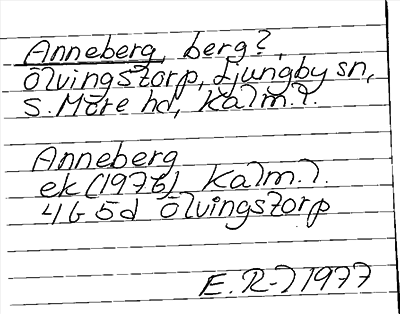 Anneberg, berg?,
Ölvingstorp, Ljungby sn,
S. Möre hd, Kalm. l.
Anneberg
ek (1976) Kalm. l.
4G 5d Ölvingstorp
E. R-l 1977